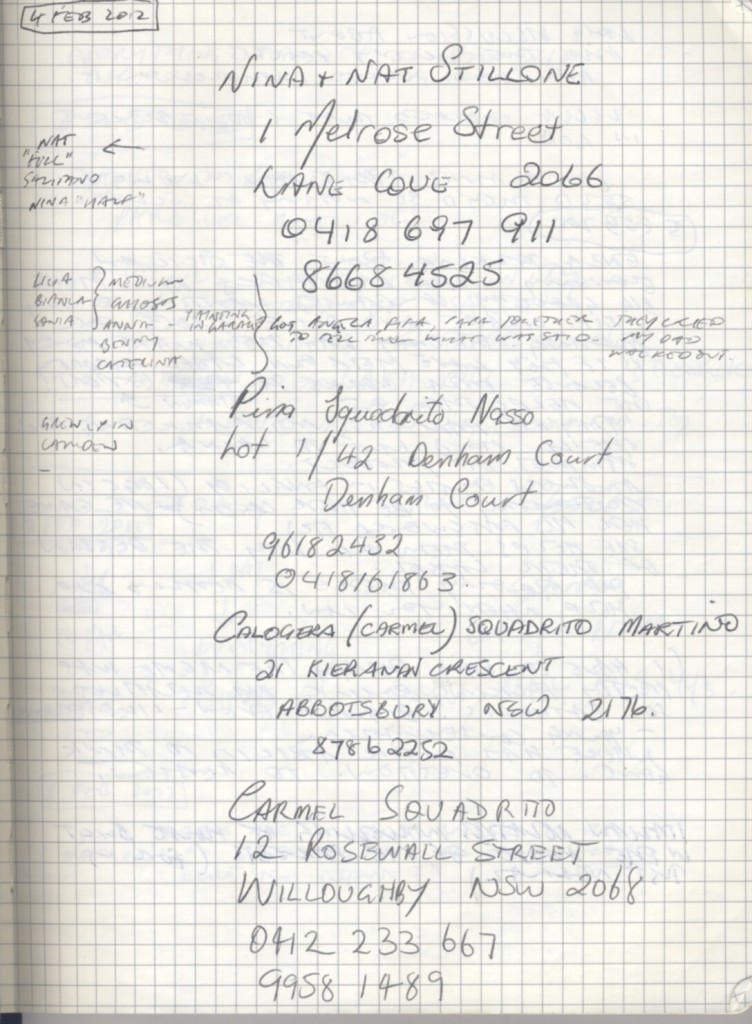 4 FEB 2012
NINA + NAT STILLONE
1 Melrose Street
LANE COVE 2066
0418 697 911
8668 4525
NAT
"FULL"
SICILIANO
NINA "HALF"
LIVIA
BIANCA
SONIA
MEDIUM
ANNA - PAINTING
IN GARAGE
BENNY
CATERINA
ANGELA PIPA, PAPA TOGETHER THEY CRIED
TO TELL THEM WHAT WAS SAID. MY DAD
WALKED OUT.
Pina Squadrito Nasso
Lot 1/42 Denham Court
Denham Court
96182432
0418161863.
GREW UP IN
CAMDEN
-
CALOGERA (CARMEL) SQUADRITO MARTINO
21 KIERANAN CRESCENT
ABBOTSBURY NSW 2176.
87862252
CARMEL SQUADRITO
12 ROSEWALL STREET
WILLOUGHBY NSW 2068
0412 233 667
9958 1489